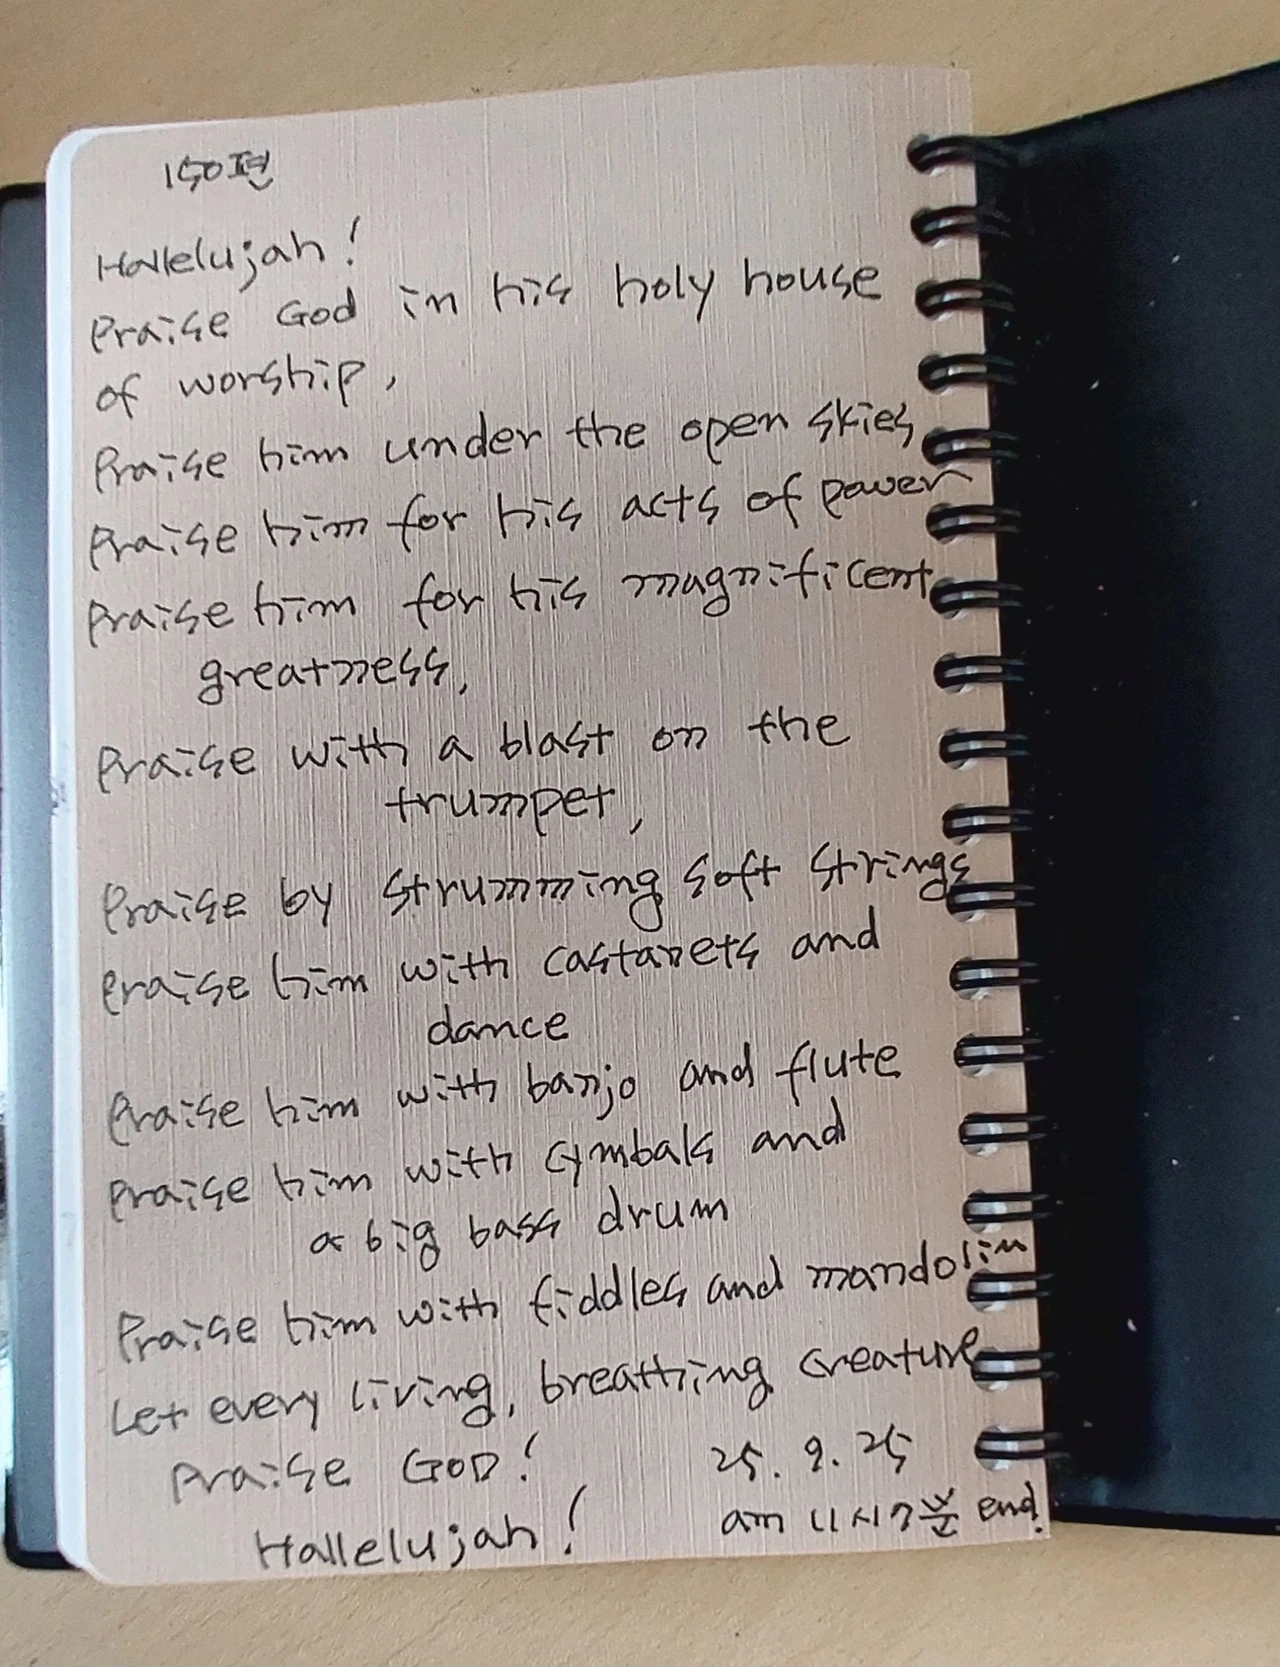 150편
Hallelujah!
Praise God in his holy house
of worship,
Praise him under the open skies,
Praise him for his acts of power
Praise him for his magnificent
greatness,
Praise with a blast on the
trumpet,
Praise by strumming soft strings
Praise him with castanets and
dance
Praise him with banjo and flute
Praise him with cymbals and
a big bass drum
Praise him with fiddles and mandolin
Let every living, breathing creature
praise GOD!
25. 9. 25
Hallelujah!
am 11시7분 end!